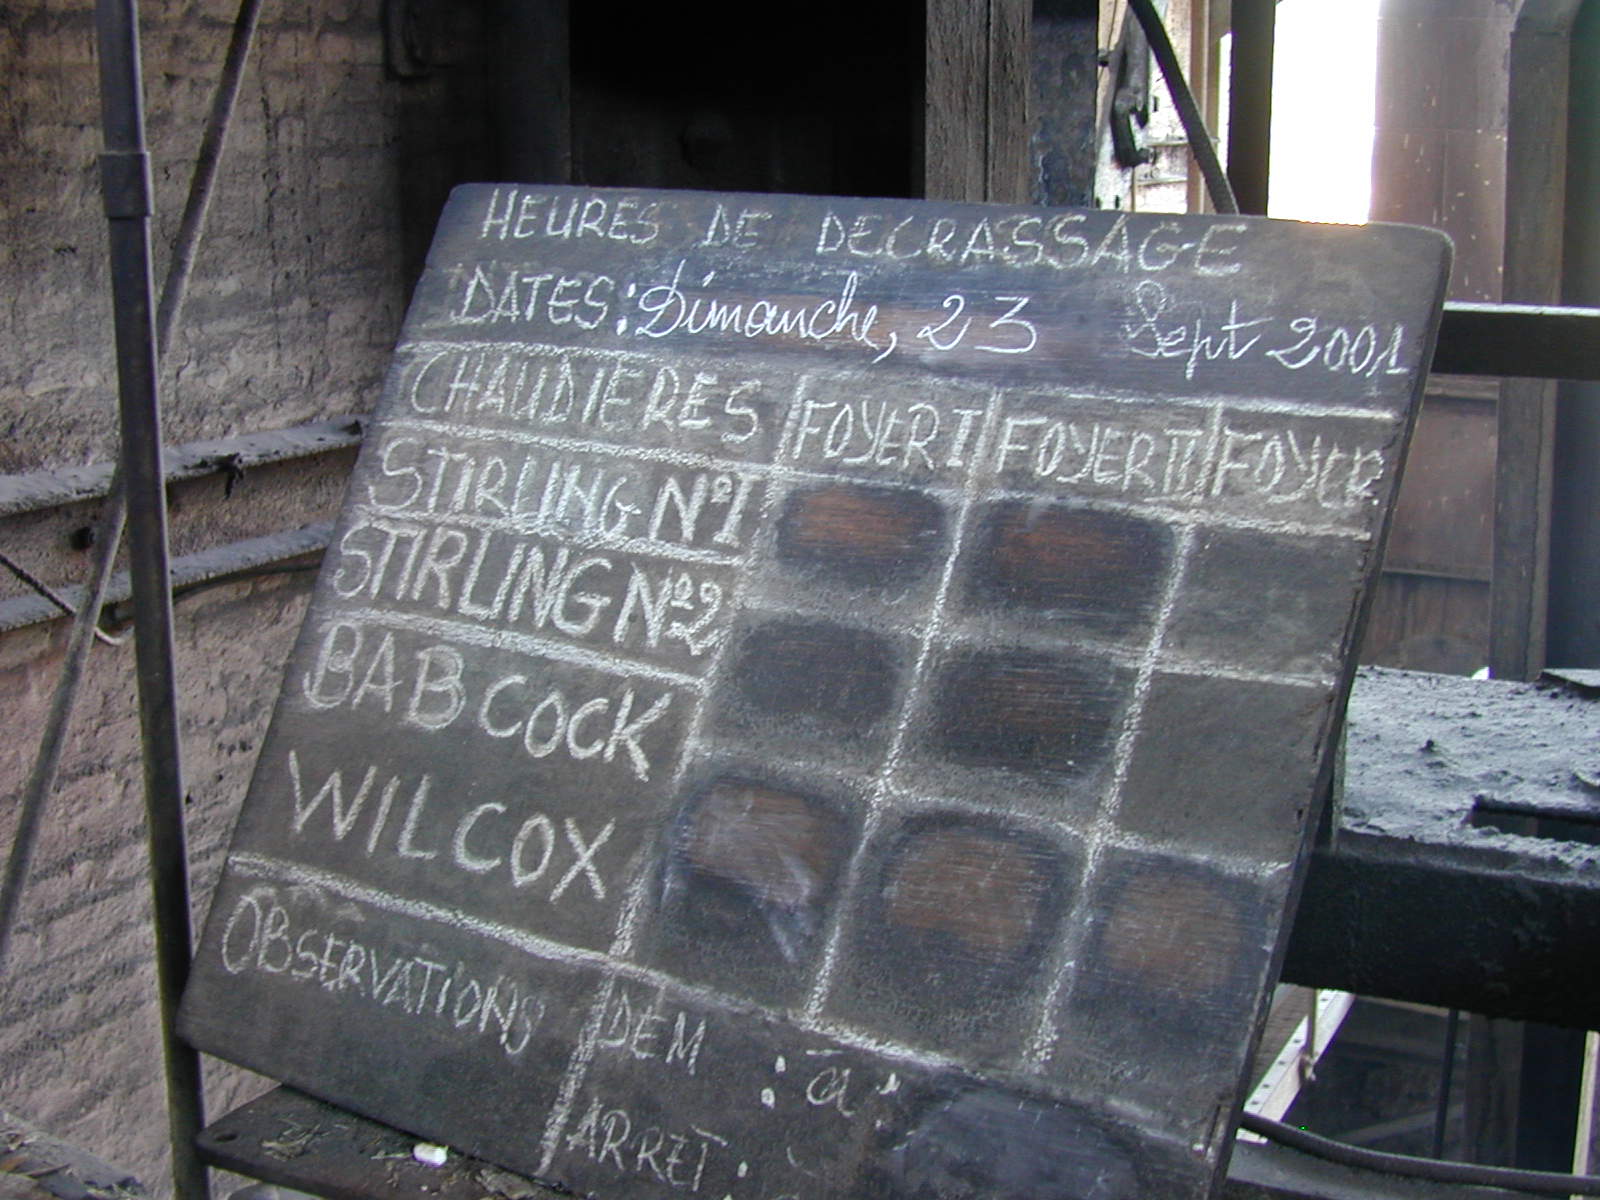 HEURES DE DECRASSAGE
DATES: Dimanche, 23 Sept 2001
CHAUDIERES FOYER I FOYER II FOYER
STIRLING Nº I
STIRLING Nº 2
BABCOCK
WILCOX
OBSERVATIONS DEM : à
ARRET :